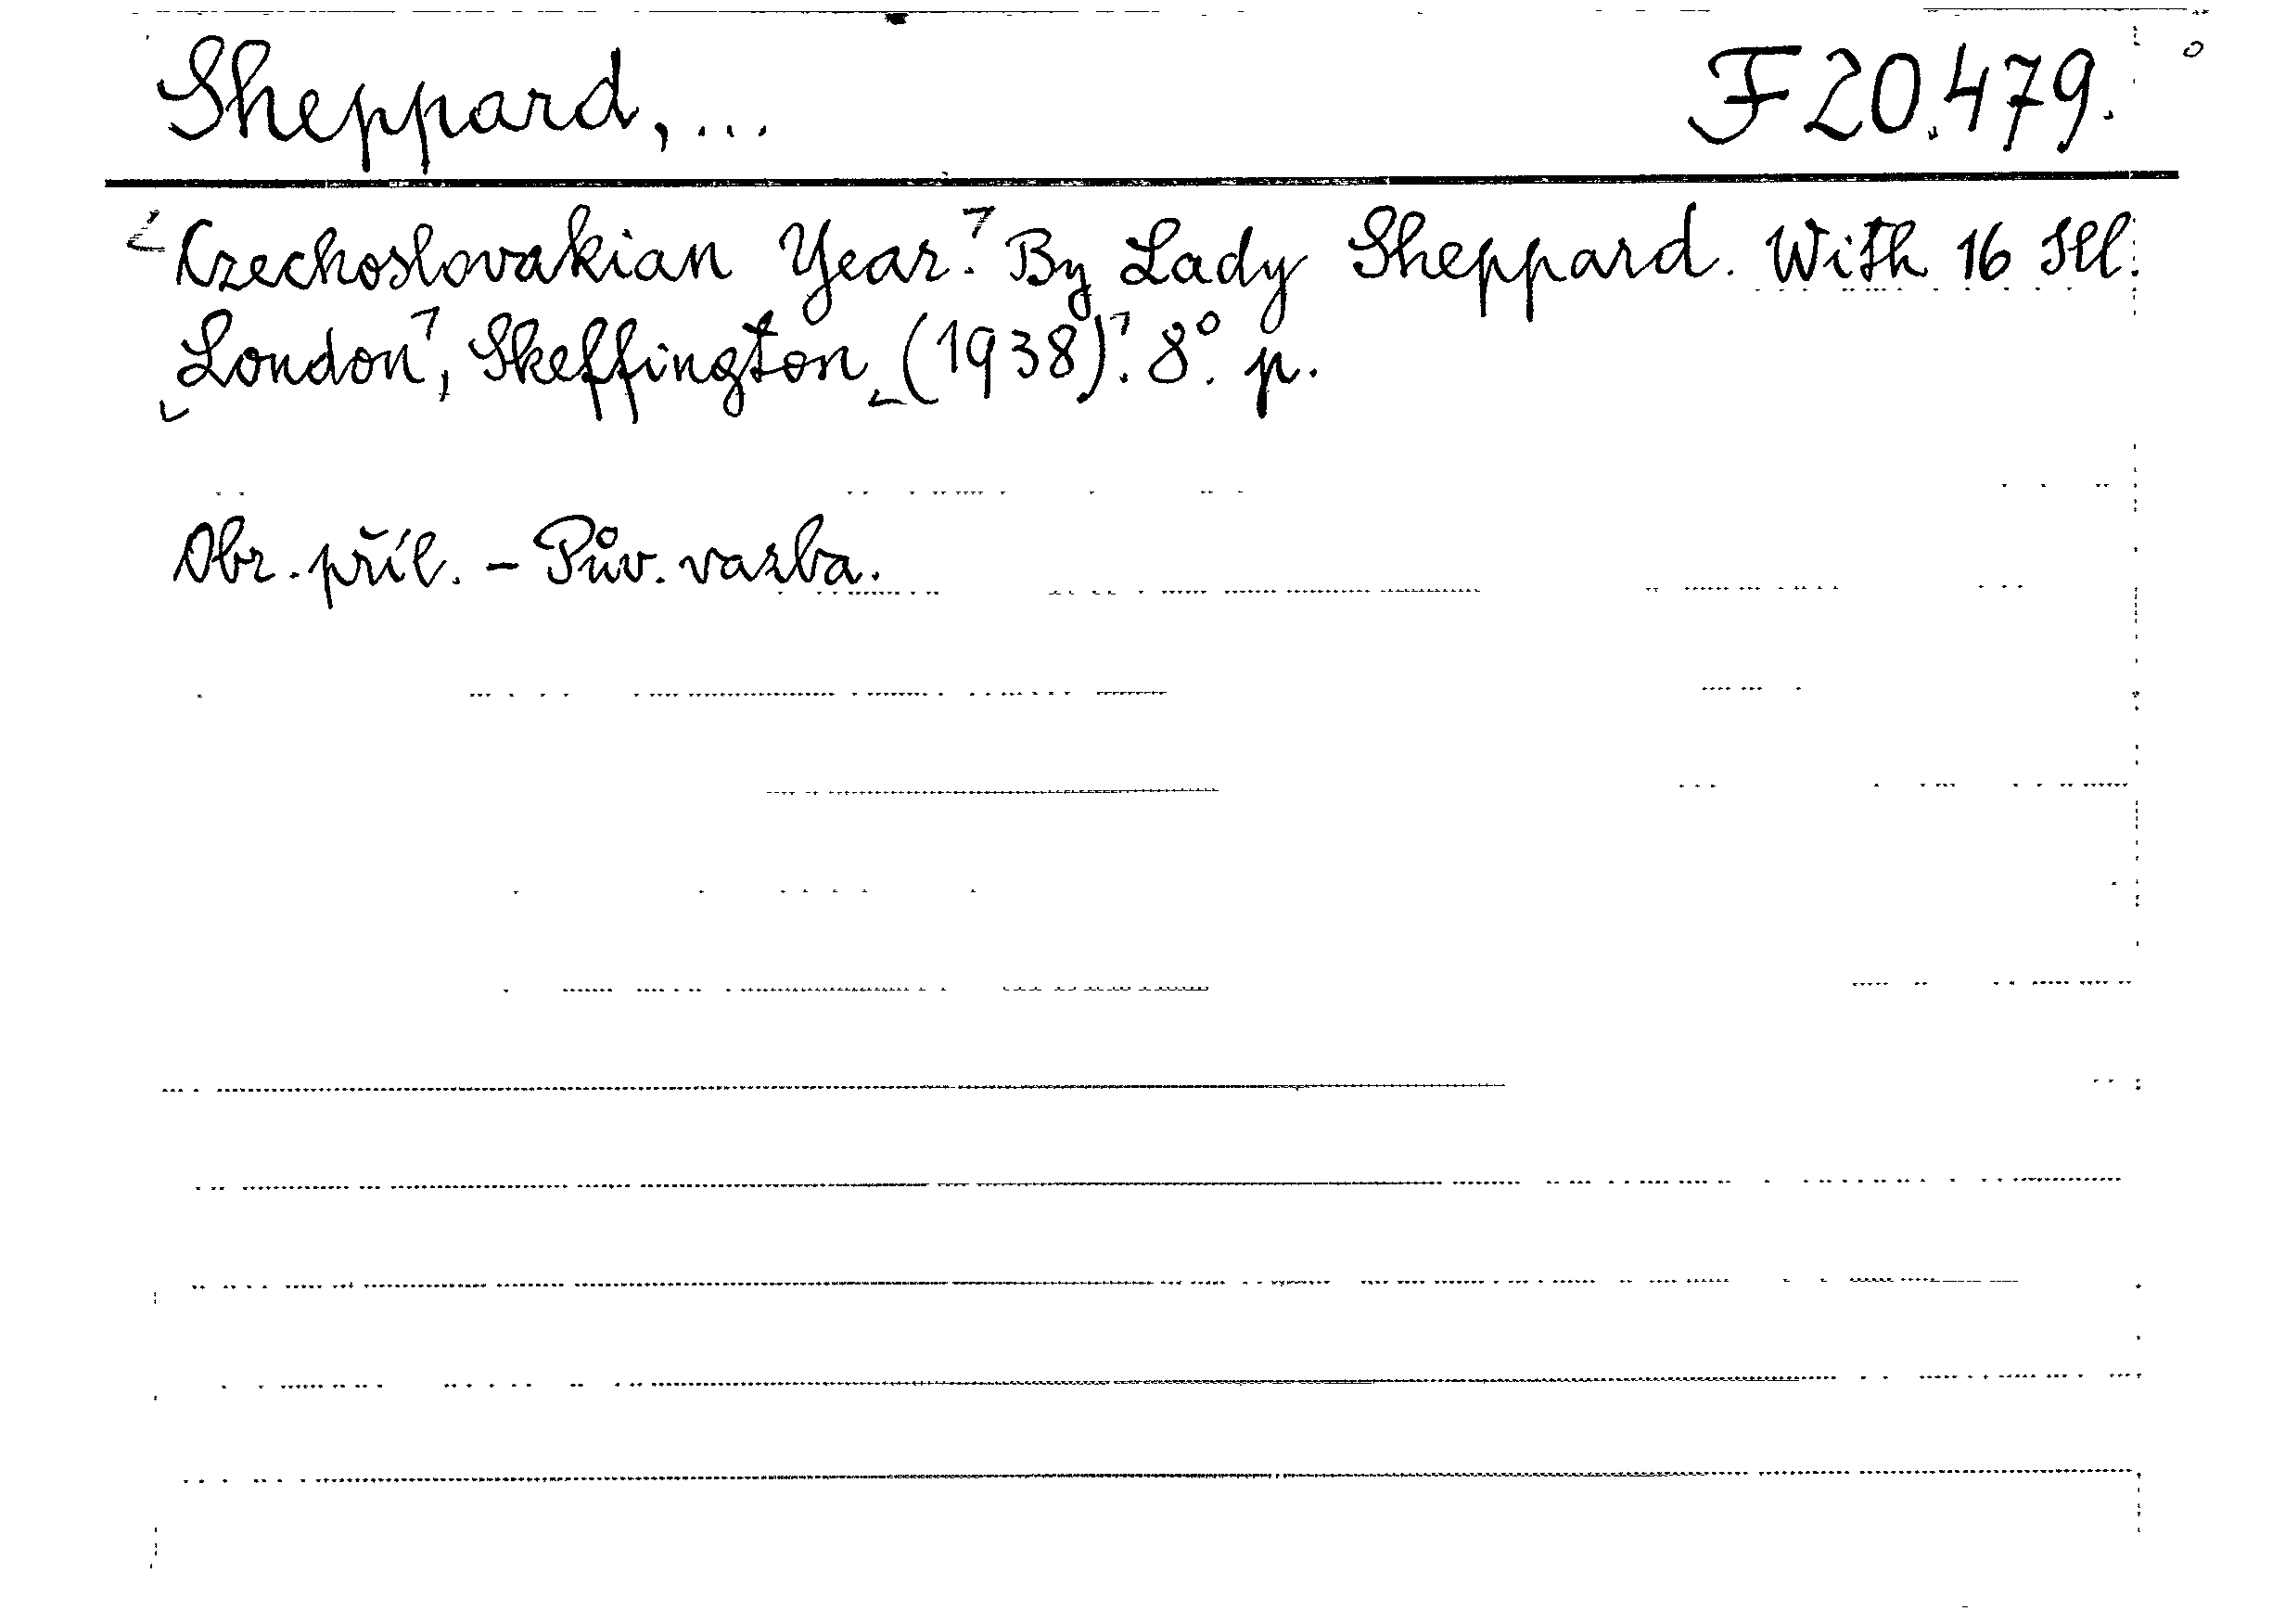 Sheppard, ... F 20.479.
Czechoslovakian Year. By Lady Sheppard. With 16 Ill.
London, Skeffington (1938). 8°. p.
Obr. příl. - Pův. vazba.